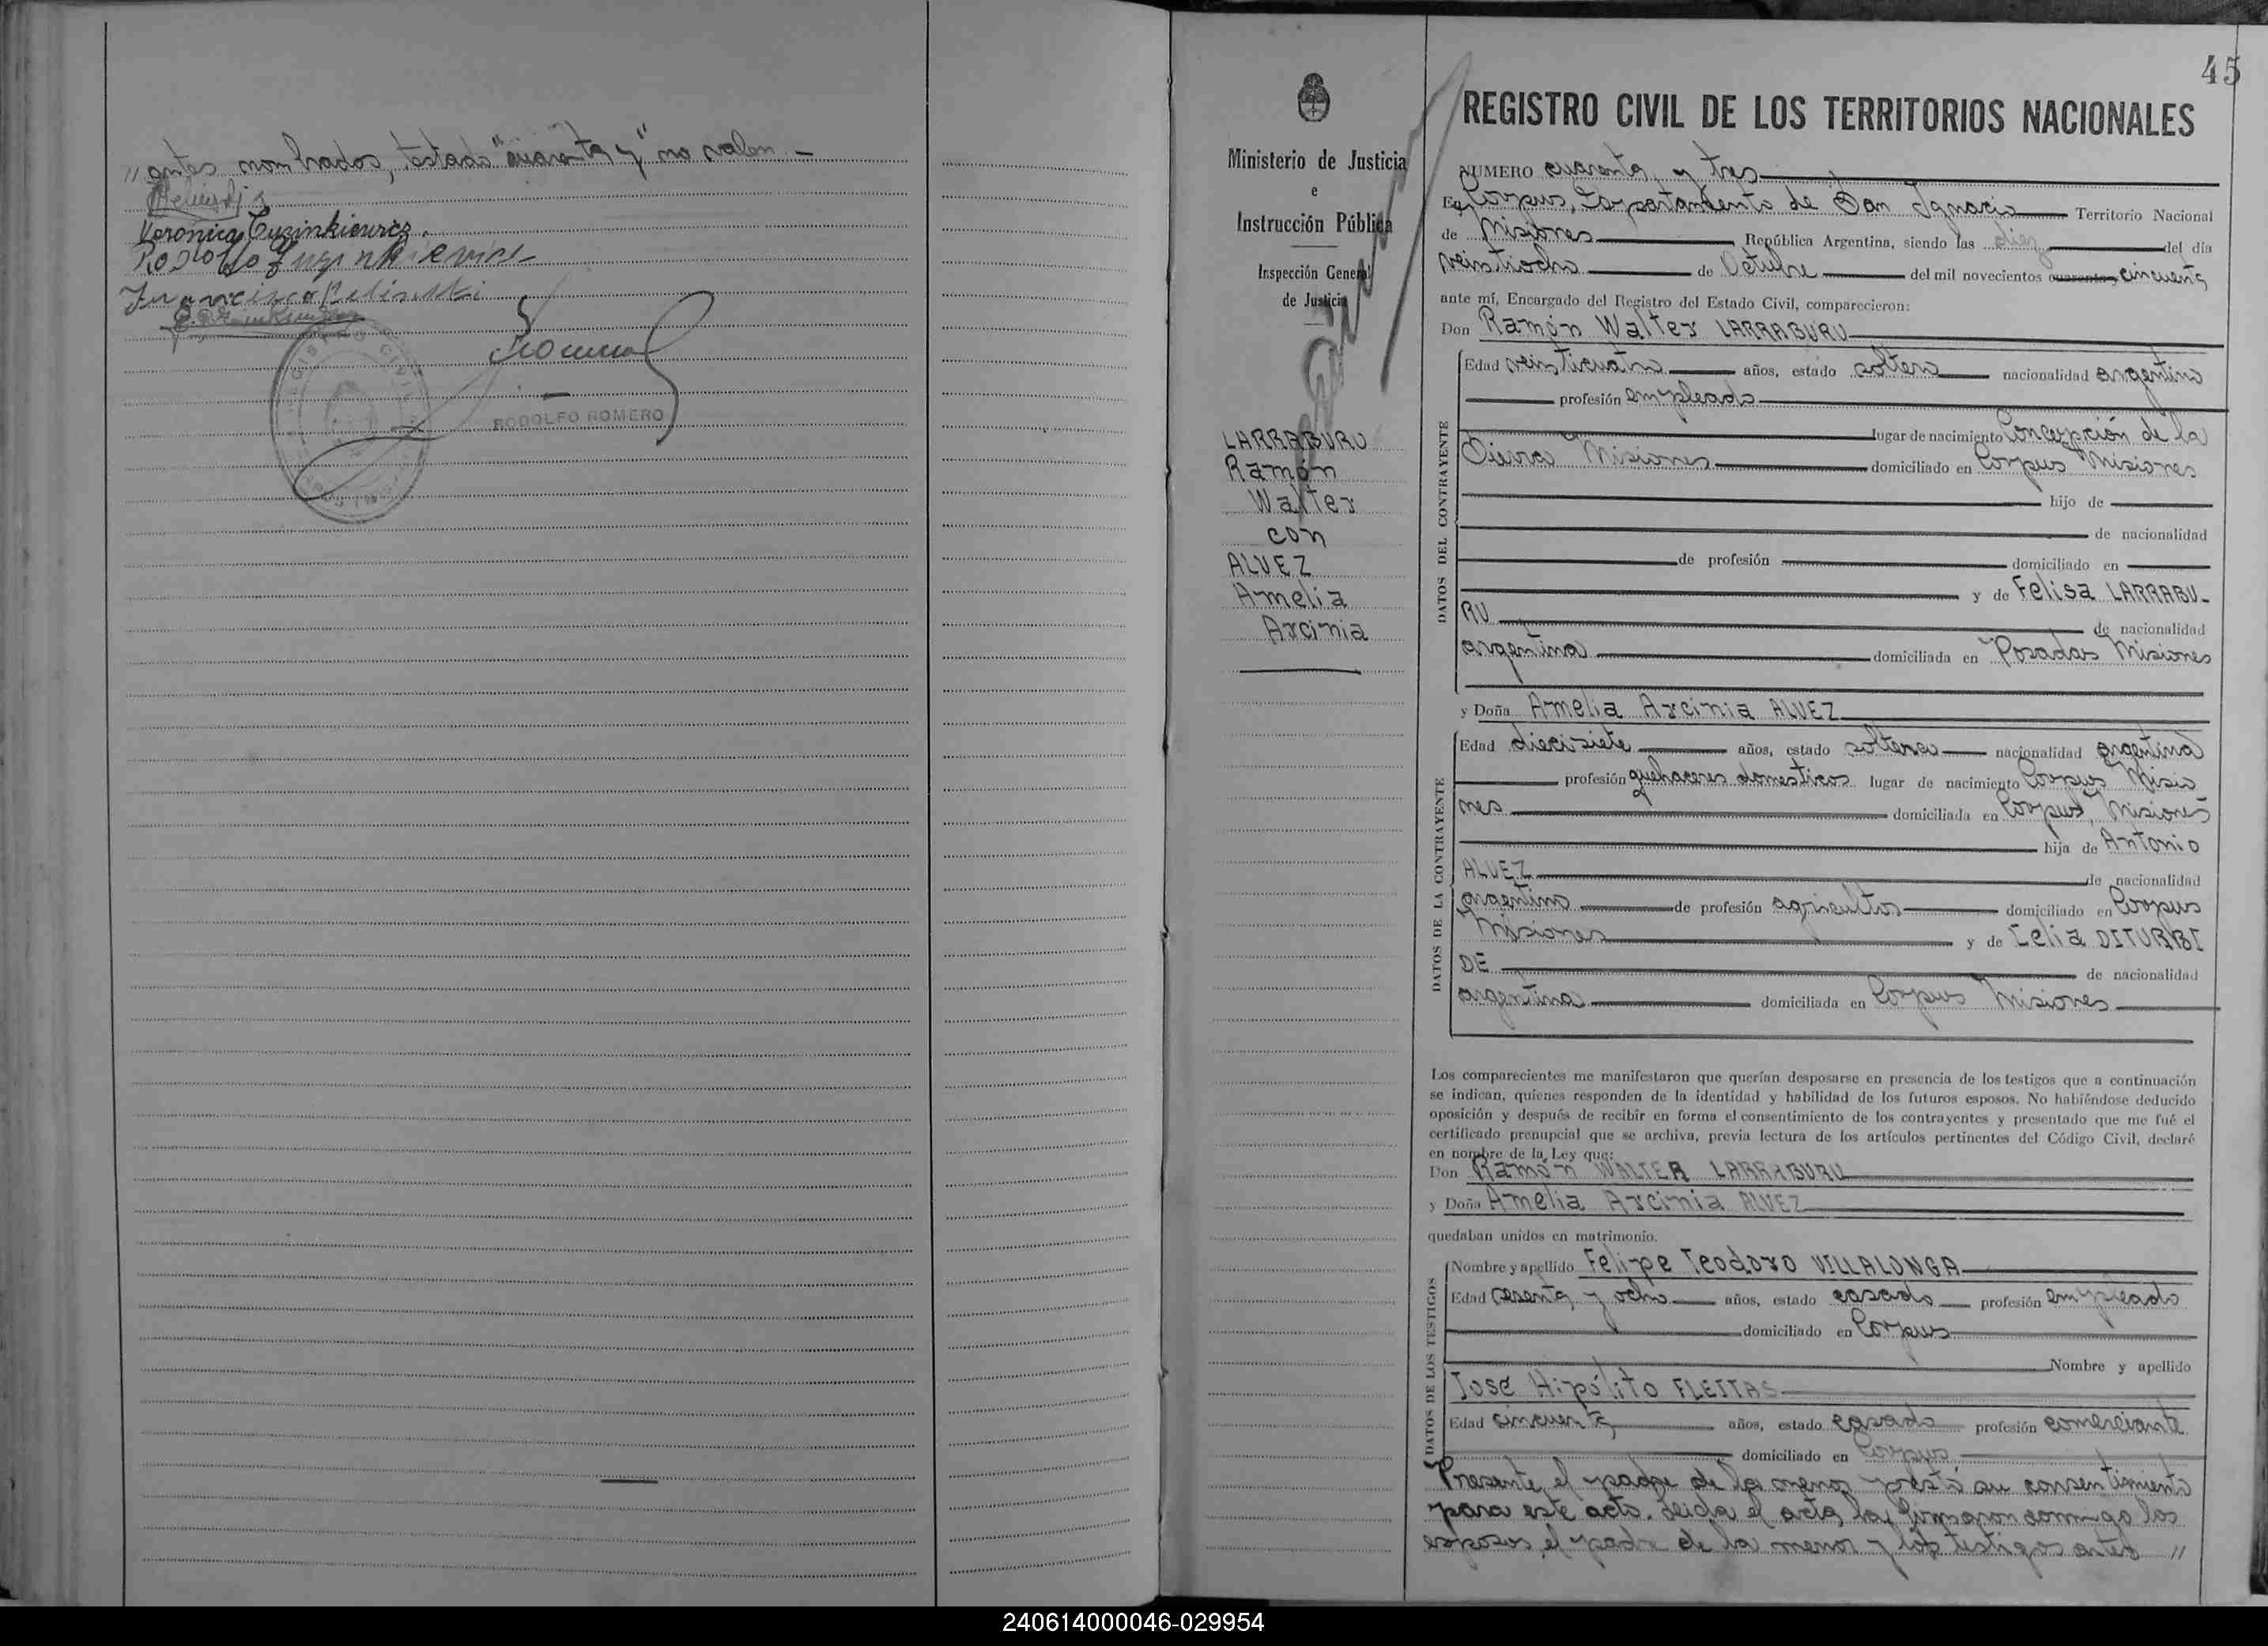 "antes nombrados, testado "cuarenta y" no valen. —
Veronica Cuzinkiewicz.
Rodolfo
Francisco Zelinski
REGISTRO CIVIL
RODOLFO ROMERO
45
Ministerio de Justicia
e
Instrucción Pública
Inspección General
de Justicia
LARRABURU
Ramón
Walter
con
ALVEZ
Amelia
Arcinia
REGISTRO CIVIL DE LOS TERRITORIOS NACIONALES
NUMERO cuarenta y tres
En Corpus, Departamento de San Ignacio Territorio Nacional
de Misiones República Argentina, siendo las diez del día
veintiocho de Octubre del mil novecientos cuarenta cincuenta
ante mí, Encargado del Registro del Estado Civil, comparecieron:
Don Ramón Walter LARRABURU
DATOS DEL CONTRAYENTE
Edad veinticuatro años, estado soltero nacionalidad argentino
profesión empleado
lugar de nacimiento Concepción de la
Sierra Misiones domiciliado en Corpus Misiones
hijo de
de nacionalidad
de profesión domiciliado en
y de Felisa LARRABU-
RU de nacionalidad
argentina domiciliada en Posadas Misiones
y Doña Amelia Arcinia ALVEZ
DATOS DE LA CONTRAYENTE
Edad diecisiete años, estado soltera nacionalidad argentina
profesión quehaceres domesticos lugar de nacimiento Corpus Misio
nes domiciliada en Corpus, Misiones
hija de Antonio
ALVEZ de nacionalidad
argentino de profesión agricultor domiciliado en Corpus
Misiones y de Celia DITURBI
DE de nacionalidad
argentina domiciliada en Corpus Misiones
Los comparecientes me manifestaron que querían desposarse en presencia de los testigos que a continuación
se indican, quienes responden de la identidad y habilidad de los futuros esposos. No habiéndose deducido
oposición y después de recibir en forma el consentimiento de los contrayentes y presentado que me fué el
certificado prenupcial que se archiva, previa lectura de los artículos pertinentes del Código Civil, declaré
en nombre de la Ley que:
Don Ramón WALTER LARRABURU
y Doña Amelia Arcinia ALVEZ
quedaban unidos en matrimonio.
DATOS DE LOS TESTIGOS
Nombre y apellido Felipe Teodoro VILLALONGA
Edad cesenta y ocho años, estado casado profesión empleado
domiciliado en Corpus
Nombre y apellido
José Hipólito FLEITAS
Edad cincuenta años, estado casado profesión comerciante
domiciliado en Corpus
Presente el padre de la menor prestó su consentimiento
para este acto. Leida el acta la firmaron conmigo los
esposos, el padre de la menor y los testigos antes "
240614000046-029954